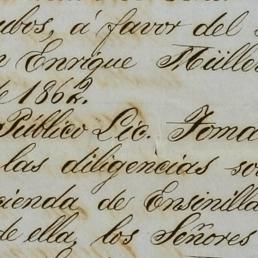 ubos, á favor del
n Enrique Müller
de 1862.
Público Lic. Toma
las diligencias so
ienda de Ensinilla
de ella, los Señores